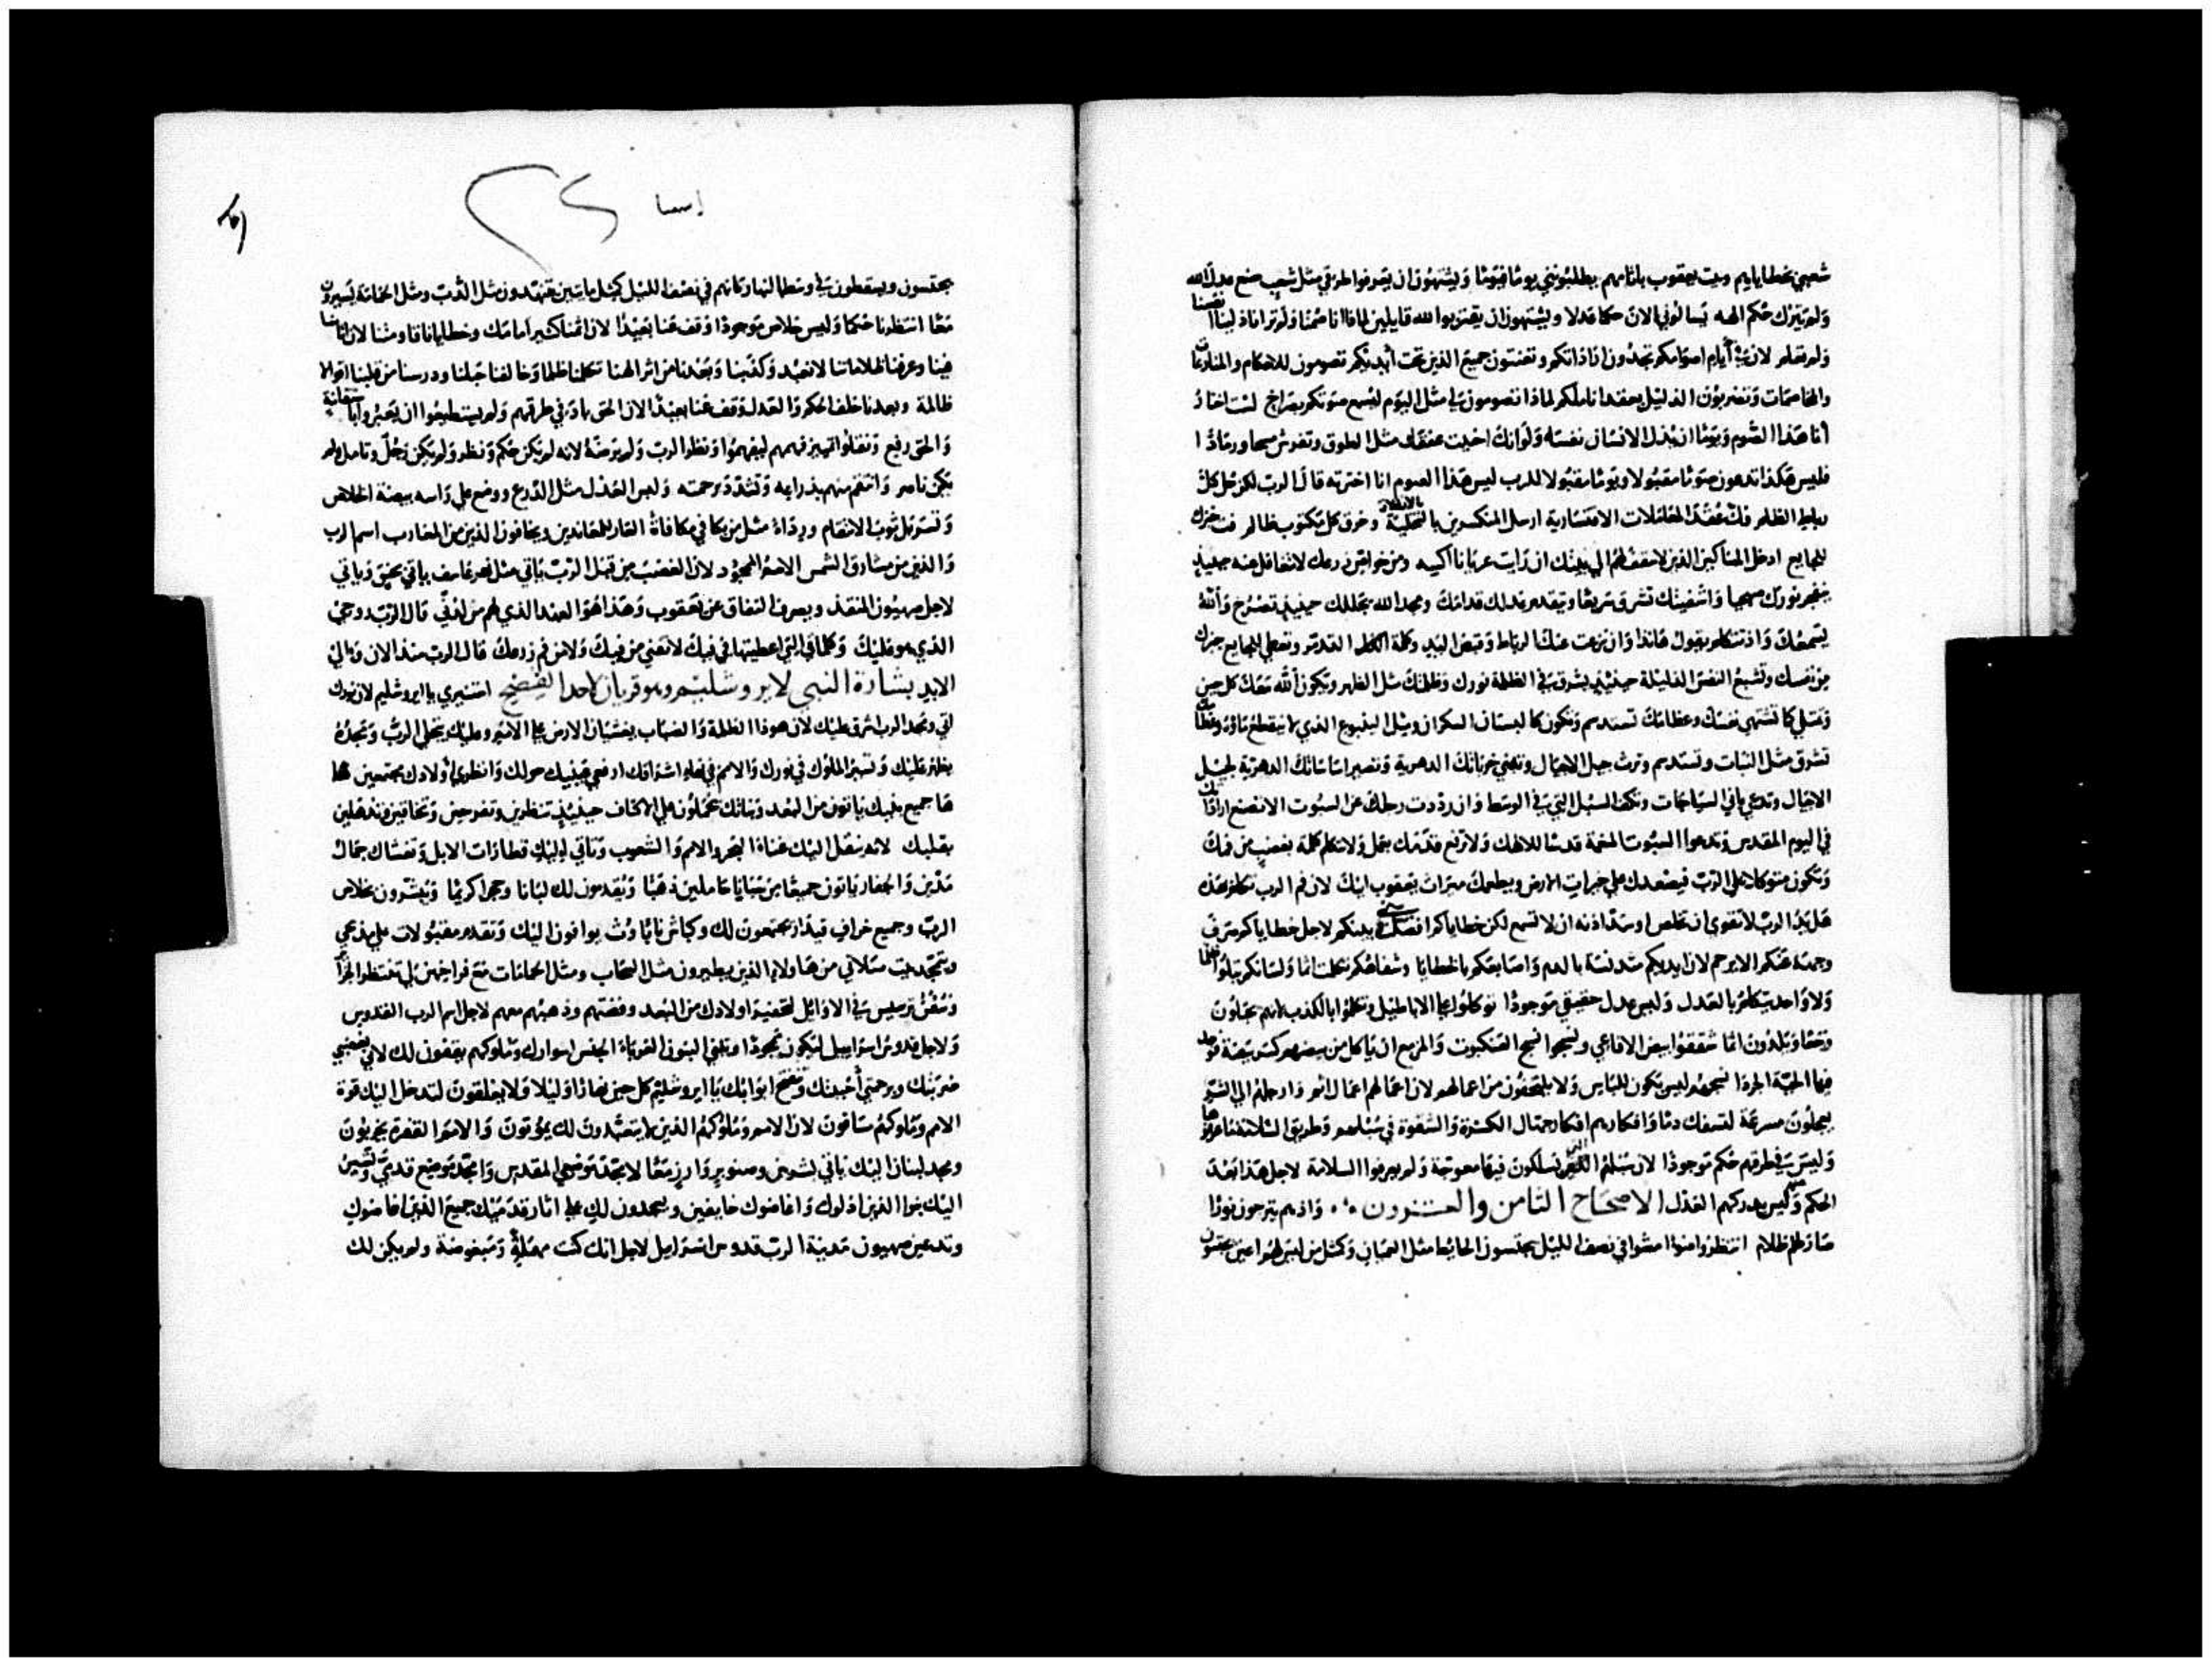 شعبي بخطاياهم وبيت يعقوب باثامهم يطلبونني يومًا فيومًا ويشتهون ان يعرفوا طرقي مثل شعب صنع عدل الله
ولم يترك حكم الهه يسالوني الان حكما عدلا ويشتهون ان يقتربوا لله قايلين لماذا انا صمنا ولم تر اذللنا انفسنا
ولم تعلم لان في ايام اصوامكم تجدون لذاتكم وتعنتون جميع الذين تحت ايديكم تصومون للاحكام والمنازعات
والمخاصمات وتضربون الذليل لماذا تصومون لي مثل اليوم ليسمع صوتكم بصراخ لست اختار
انا هذا الصوم ويومًا ان يذل الانسان نفسه ولو انك احنيت عنقك مثل الطوق وتفرش مسحا ورمادًا
فليس هكذا تدعون صومًا مقبولا ويومًا مقبولا للرب ليس هذا الصوم انا اخترته قال الرب لكن حل كل
رباط الظلم فك عقد المعاملات الاقتسارية ارسل المنكسرين بالتخلية وخرق كل مكتوب ظالم فت خبزك
للجايع ادخل المساكين الذين لا سقف لهم الي بيتك ان رايت عريانا اكسه ومن خواص زرعك لا تتغافل عنه حينيذ
ينفجر نورك صبحيا واشفيتك تشرق سريعًا ويتقدم عدلك قدامك ومجد الله يجللك حينيذ تصرخ والله
يسمعك واذ تتكلم يقول هانذا وان نزعت عنك الرباط وقبض اليد وكلمة التذمر وتعطي الجايع خبزك
من نفسك وتشبع النفس الذليلة حينيذ يشرق في الظلمة نورك وظلمتك مثل الظهر ويكون الله معك كل حين
وتمتلي كما تشتهي نفسك وعظامك تسمن وتكون كالبستان السكران ومثل الينبوع الذي لا ينقطع ماؤه وعظامك
تشرق مثل النبات وتستدسم وترث جيل الاجيال وتبني خرباتك الدهرية وتصير اساساتك الدهرية لجيل
الاجيال وتدعي باني السياجات وتكف السبل التي في الوسط وان رددت رجلك عن السبوت لا تصنع ارادتك
في اليوم المقدس وتدعوا السبوت المنعمة قدسًا لالهك ولا ترفع قدمك بعمل ولا تتكلم كلمة بغضب من فمك
وتكون متوكلا علي الرب فيصعدك علي خيرات الارض ويطعمك ميراث يعقوب ابيك لان فم الرب تكلم بهذه
هل يد الرب لا تقوي ان تخلص او سد اذنه ان لا تسمع لكن خطاياكم بينكم لاجل خطاياكم صرف
وجهه عنكم لا يرحم لان ايديكم مدنسة بالدم واصابعكم بالخطايا وشفاهكم تكلمت اثما ولسانكم يتلوا ظلما
ولا واحد يتكلم بالعدل وليس عدل حقيقي موجودًا توكلوا علي الاباطيل وتكلموا بالكذب لانهم يحبلون
وجعًا ويلدون اثما شققوا بيض الافاعي ونسجوا نسج العنكبوت والمزمع ان ياكل من بيضهم كسر بيضة فوجد
فيها الحية الجردا نسجهم ليس يكون للباس ولا يلتحفون من اعمالهم لان اعمالهم اعمال اثم وارجلهم الي الشر
يعجلون مسرعة لسفك دمًا وافكارهم افكار جهال الكسرة والشقوة في سبلهم وطريق السلامة ما عرفوها
وليس في طرقهم حكم موجودًا لان سبلهم التي يسلكون فيها معوجة ولم يعرفوا السلامة لاجل هذا بعد
الحكم عنهم وليس يدركهم العدل الاصحاح الثامن والعشرون واذ هم يترجون نورًا
صار لهم ظلام انتظروا ضوا مشوا في نصف الليل يجتسون الحايط مثل العميان وكمثل من ليس لهم اعين يجتسون
اسعيا
يجتسون ويسقطون في وسط النهار كانهم في نصف الليل كمثل مايتين يتنهدون مثل الدب ومثل الحمامة يسيرون
معًا انتظرنا حكما وليس خلاص موجودًا وقف عنا بعيدًا لان اثمنا كثير امامك وخطايانا قاومتنا لان اثامنا
فينا وعرفنا ظلاماتنا لا نعبد وكذبنا وبعدنا من اثر الهنا تكلمنا ظلما وخالفنا حبلنا ودرسنا من قلبنا اقوالا
ظالمة وبعدنا خلف الحكم والعدل وقف عنا بعيدًا لان الحق باد في طرقهم ولم يستطيعوا ان يعبروا باستقامة
والحق رفيع ونقلوا فهمهم ليفهموا ونظر الرب ولم يرضه لانه لم يكن حكم ونظر ولم يكن رجل وتامل ولم
يكن ناصر وانتقم منهم بذراعه وتشدد برحمته ولبس العدل مثل الدرع ووضع علي راسه بيضة الخلاص
وتسربل ثوب الانتقام ورداه مثل من يكافي مكافاة العار للمعاندين ويخافون الذين من المغارب اسم الرب
والذين من مشارق الشمس الاسم الممجود لان الغضب من قبل الرب ياتي مثل نهر عاسف ياتي بحنق وياتي
لاجل صهيون المنقذ ويصرف النفاق عن يعقوب وهذا هو العهد الذي لهم من لدني قال الرب روحي
الذي هو عليك وكلماتي التي اعطيتها في فيك لا تفني من فيك ولا من فم زرعك قال الرب منذ الان والي
الابد بشارة النبي لايروشليم وهو قريان لاحد الفصح استنيري يا ايروشليم لان نورك
اتي ومجد الرب اشرق عليك لان هوذا الظلمة والضباب يغشيان الارض علي الامم وعليك يتجلي الرب ومجده
يظهر عليك وتسير الملوك في نورك والامم في بهاء اشراقك ارفعي عينيك حولك وانظري اولادك مجتمعين
ها جميع بنيك ياتون من البعد وبناتك تحملون علي الاكتاف حينيذ تنظرين وتفرحين وتخافين وتندهلين
بقلبك لانه ينقل اليك غناء البحر والامم والشعوب وتاتي اليك قطارات الابل وتغشاك جمال
مدين والجفار ياتون جميعًا من سبايا حاملين ذهبًا ويقدمون لك لبانا وحجرا كريمًا ويبشرون بخلاص
الرب وجميع خراف قيدار يجتمعون لك وكباش نابادوث يوافون اليك وتقدم مقبولات علي مذبحي
ويتمجد بيت صلاتي من هاولاء الذين يطيرون مثل السحاب ومثل الحمامات مع فراخهن لي تنتظر الجزاير
وسفن ترسيس في الاوايل لتحضر اولادك من البعد وفضتهم وذهبهم معهم لاجل اسم الرب القدوس
ولاجل قدوس اسراييل ليكون ممجودًا وتبني البنون الغرباء الجنس اسوارك وملوكهم يقفون لك لاني بغضبي
ضربتك وبرحمتي احببتك وتفتح ابوابك يا ايروشليم كل حين نهارًا وليلا ولا يغلقون لتدخل اليك قوة
الامم وملوكهم مساقون لان الامم وملوكهم الذين لا يتعبدون لك يموتون والامم القفرة يخربون
ومجد لبنان اليك ياتي بشربين وصنوبر وارز معًا لا مجد موضعي المقدس وامجد موضع قدمي وتسير
اليك بنوا الذين اذلوك واغاضوك خايفين ويسجدون لك علي اثار قدميك جميع الذين اغاضوك
وتدعين صهيون مدينة الرب قدوس اسراييل لاجل انك كنت مهملة ومبغوضة ولم يكن لك